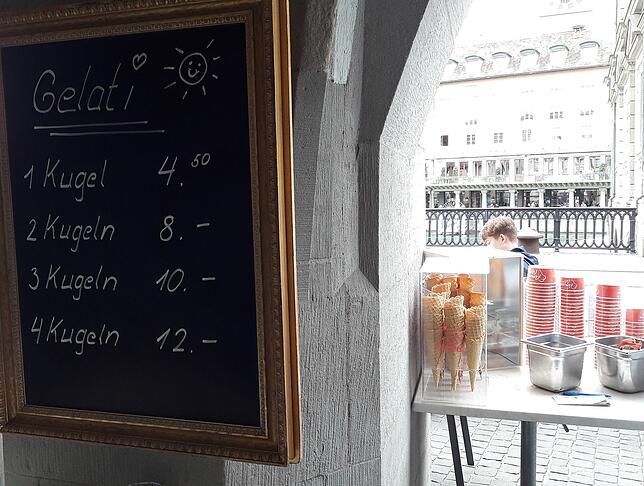 Gelati
1 Kugel 4.50
2 Kugeln 8.–
3 Kugeln 10.–
4 Kugeln 12.–